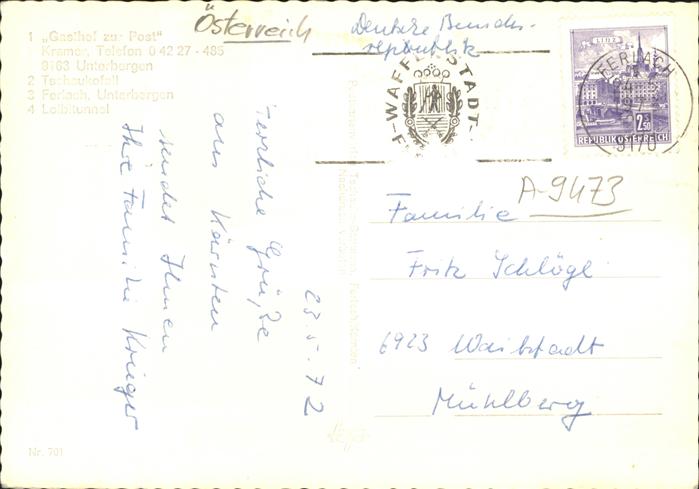 1 „Gasthof zur Post"
Kramer, Telefon 0 42 27 - 485
9163 Unterbergen
2 Tschaukofall
3 Ferlach, Unterbergen
4 Loibltunnel
Österreich
Deutsche Bundes-
republik
WAFFENSTADT
LINZ
2.50
REPUBLIK ÖSTERREICH
FERLACH
9170
A-9473
23.5.72
Herrliche Grüße
aus Kärnten
sendet Ihnen
Ihre Familie Krieger
Familie
Fritz Schlögl
6923 Waibstadt
Mühlberg
Nr. 701